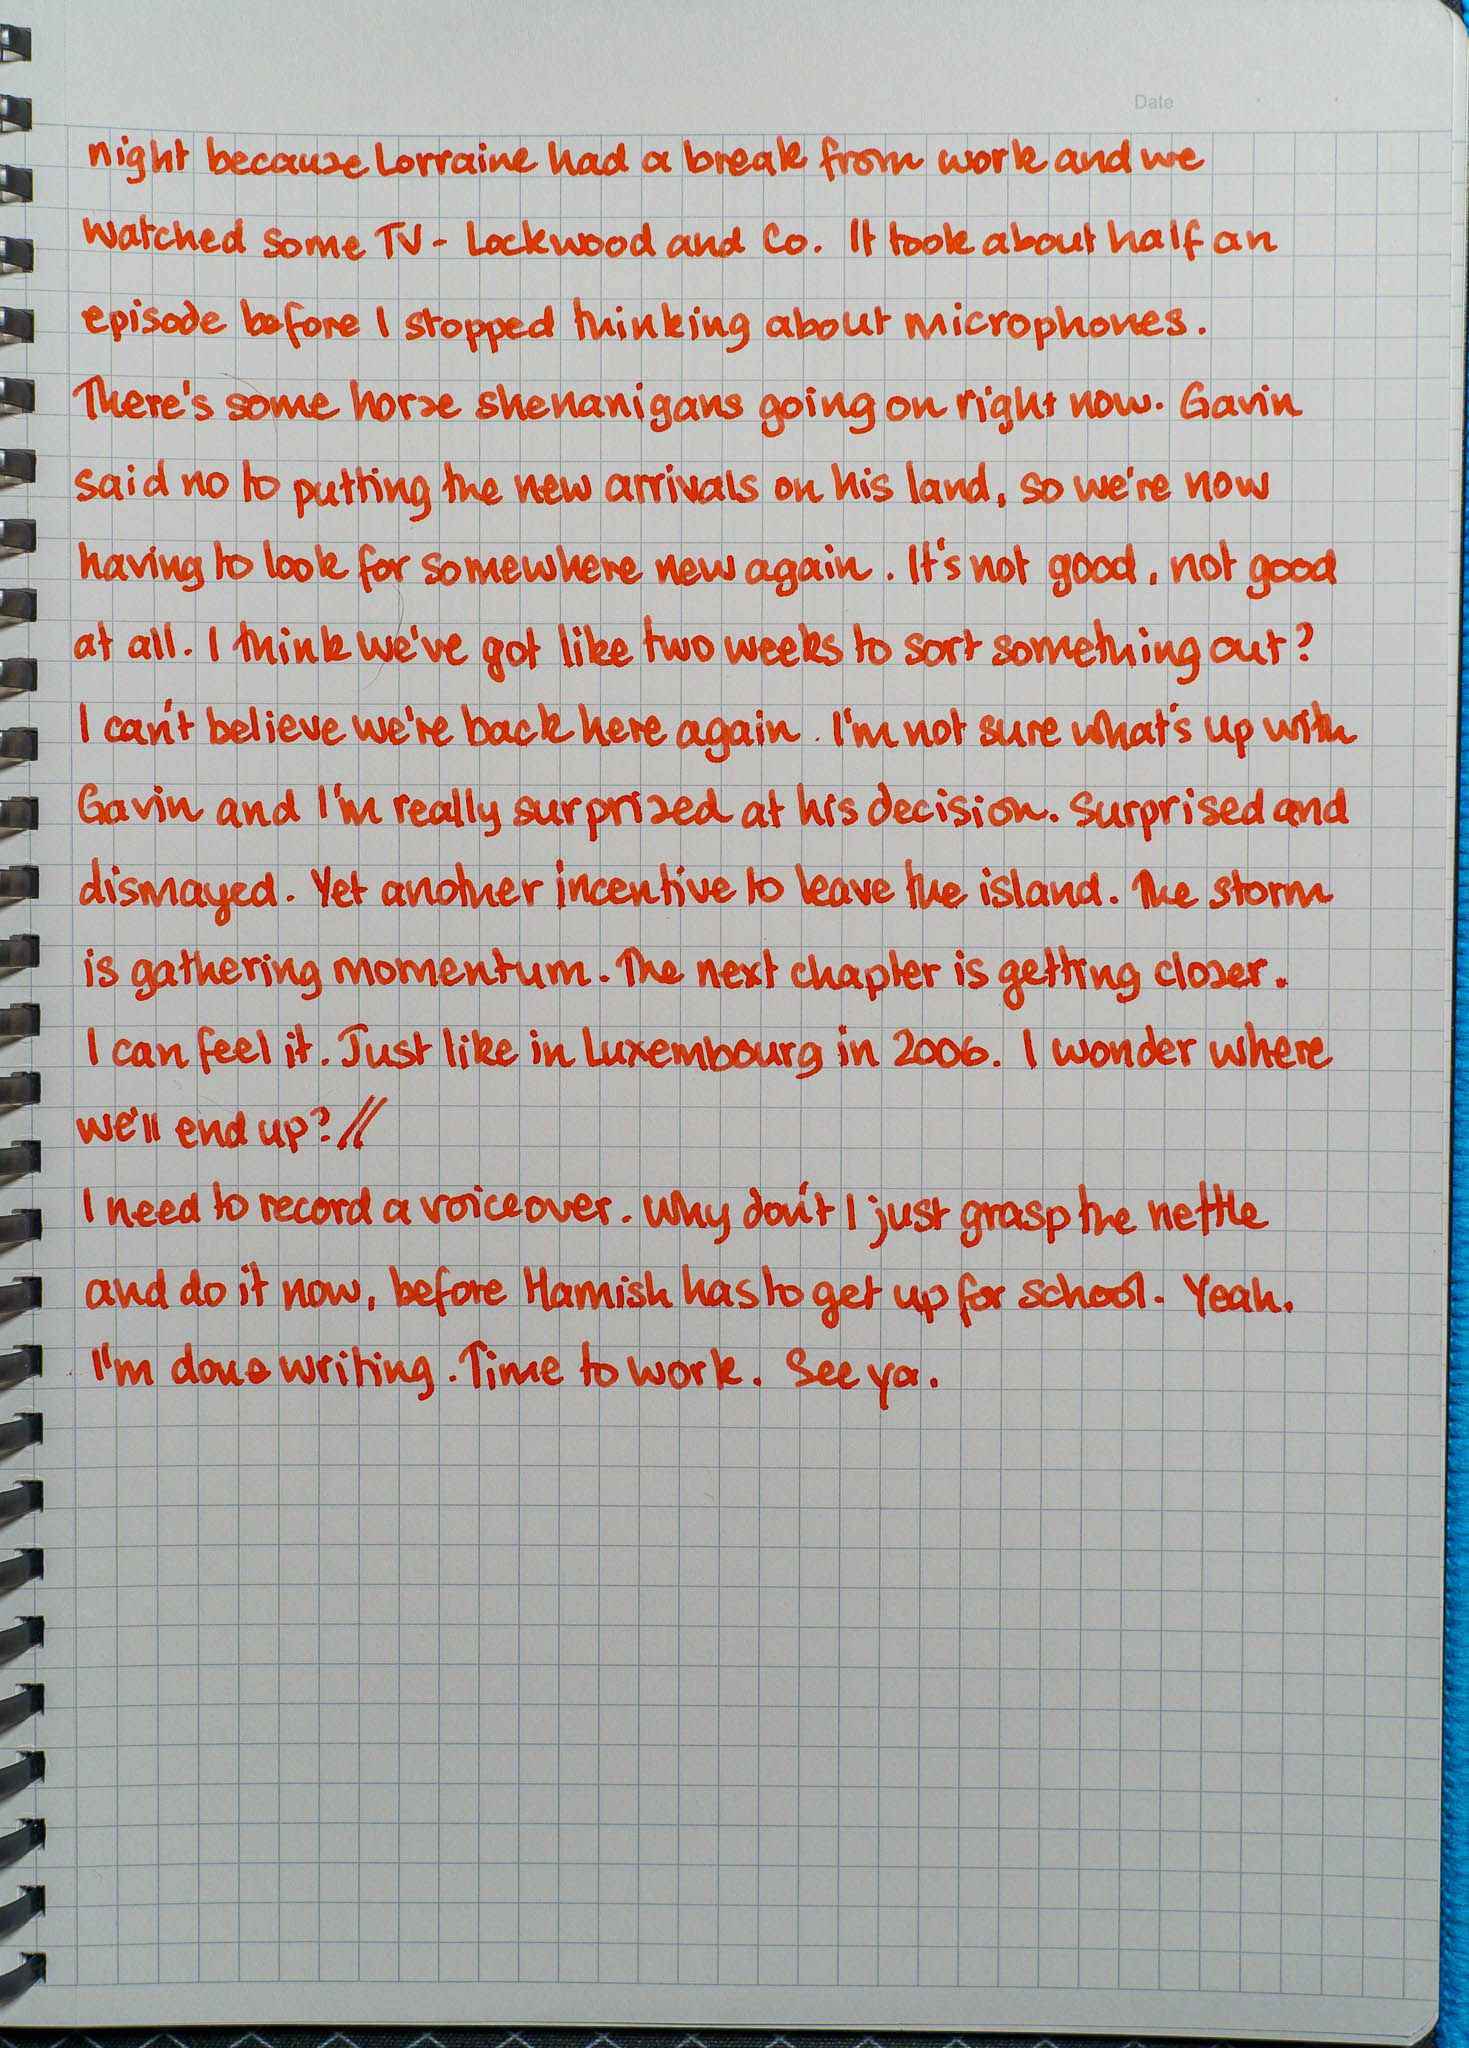 Date
night because Lorraine had a break from work and we
watched some TV - Lockwood and Co. It took about half an
episode before I stopped thinking about microphones.
There's some horse shenanigans going on right now. Gavin
said no to putting the new arrivals on his land, so we're now
having to look for somewhere new again. It's not good, not good
at all. I think we've got like two weeks to sort something out?
I can't believe we're back here again. I'm not sure what's up with
Gavin and I'm really surprised at his decision. Surprised and
dismayed. Yet another incentive to leave the island. The storm
is gathering momentum. The next chapter is getting closer.
I can feel it. Just like in Luxembourg in 2006. I wonder where
we'll end up? //
I need to record a voiceover. Why don't I just grasp the nettle
and do it now, before Hamish has to get up for school. Yeah.
I'm done writing. Time to work. See ya.